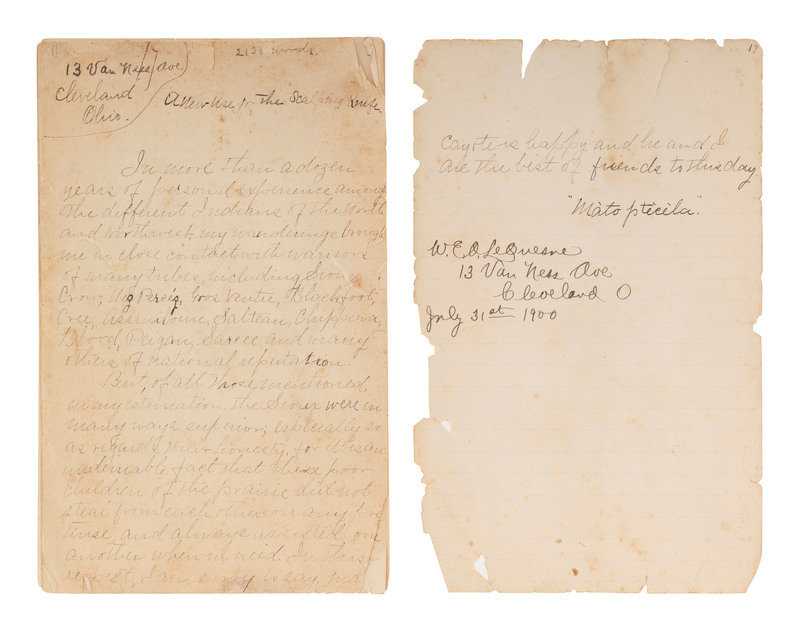 2138 words.
13 Van Ness Ave
Cleveland
Ohio.
A New Use for the Scalping Knife.
In more than a dozen
years of personal experience among
the different Indians of the North
and Northwest my wanderings brought
me in close contact with warriors
of many tribes including Sioux,
Crow, Nez Percéz, Gros Ventre, Blackfoot,
Cree, Assiniboine, Salteau, Chippewa,
Blood, Peigan, Sarcee and many
others of national reputation.
But, of all those mentioned
in my estimation the Sioux were in
many ways superior; especially so
as regards their honesty, for it is an
undeniable fact that these poor
children of the prairie did not
steal from each other on any pre
tense, and always assisted one
another when in need. In this
respect, I am sorry to say,
17
cayote is happy and he and I
are the best of friends to this day.
"Mato pticila".
W. E. O. LeQuesne
13 Van Ness Ave
Cleveland O
July 31st 1900